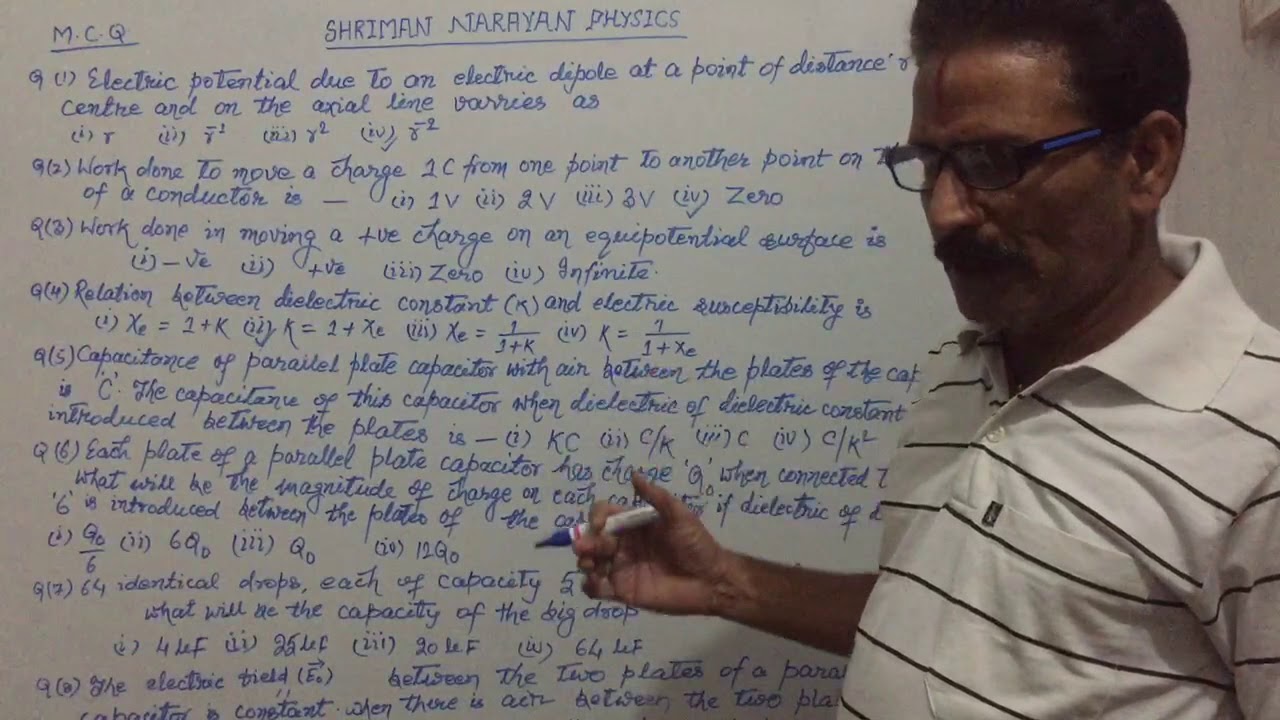 M.C.Q
SHRIMAN NARAYAN PHYSICS
Q(1) Electric potential due to an electric dipole at a point of distance 'r
centre and on the axial line varries as
(i) r (ii) r⁻¹ (iii) r² (iv) r⁻²
Q(2) Work done to move a charge 1C from one point to another point on
of a conductor is — (i) 1V (ii) 2V (iii) 3V (iv) Zero
Q(3) Work done in moving a +ve charge on an equipotential surface is
(i) -ve (ii) +ve (iii) Zero (iv) Infinite.
Q(4) Relation between dielectric constant (K) and electric susceptibility is
(i) Xe = 1+K (ii) K = 1+Xe (iii) Xe = 1/1+K (iv) K = 1/1+Xe
Q(5) Capacitance of parallel plate capacitor with air between the plates of the cap
is 'C'. The capacitance of this capacitor when dielectric of dielectric constant
introduced between the plates is — (i) KC (ii) C/K (iii) C (iv) C/K²
Q(6) Each plate of a parallel plate capacitor has charge 'Q₀' when connected
What will be the magnitude of charge on each if dielectric of
'6' is introduced between the plates of the
(i) Q₀/6 (ii) 6Q₀ (iii) Q₀ (iv) 12Q₀
Q(7) 64 identical drops, each of capacity 5
what will be the capacity of the big drop
(i) 4μF (ii) 25μF (iii) 20μF (iv) 64μF
Q(8) The electric field (E₀) between the two plates of a para
capacitor is constant when there is air between the two pla